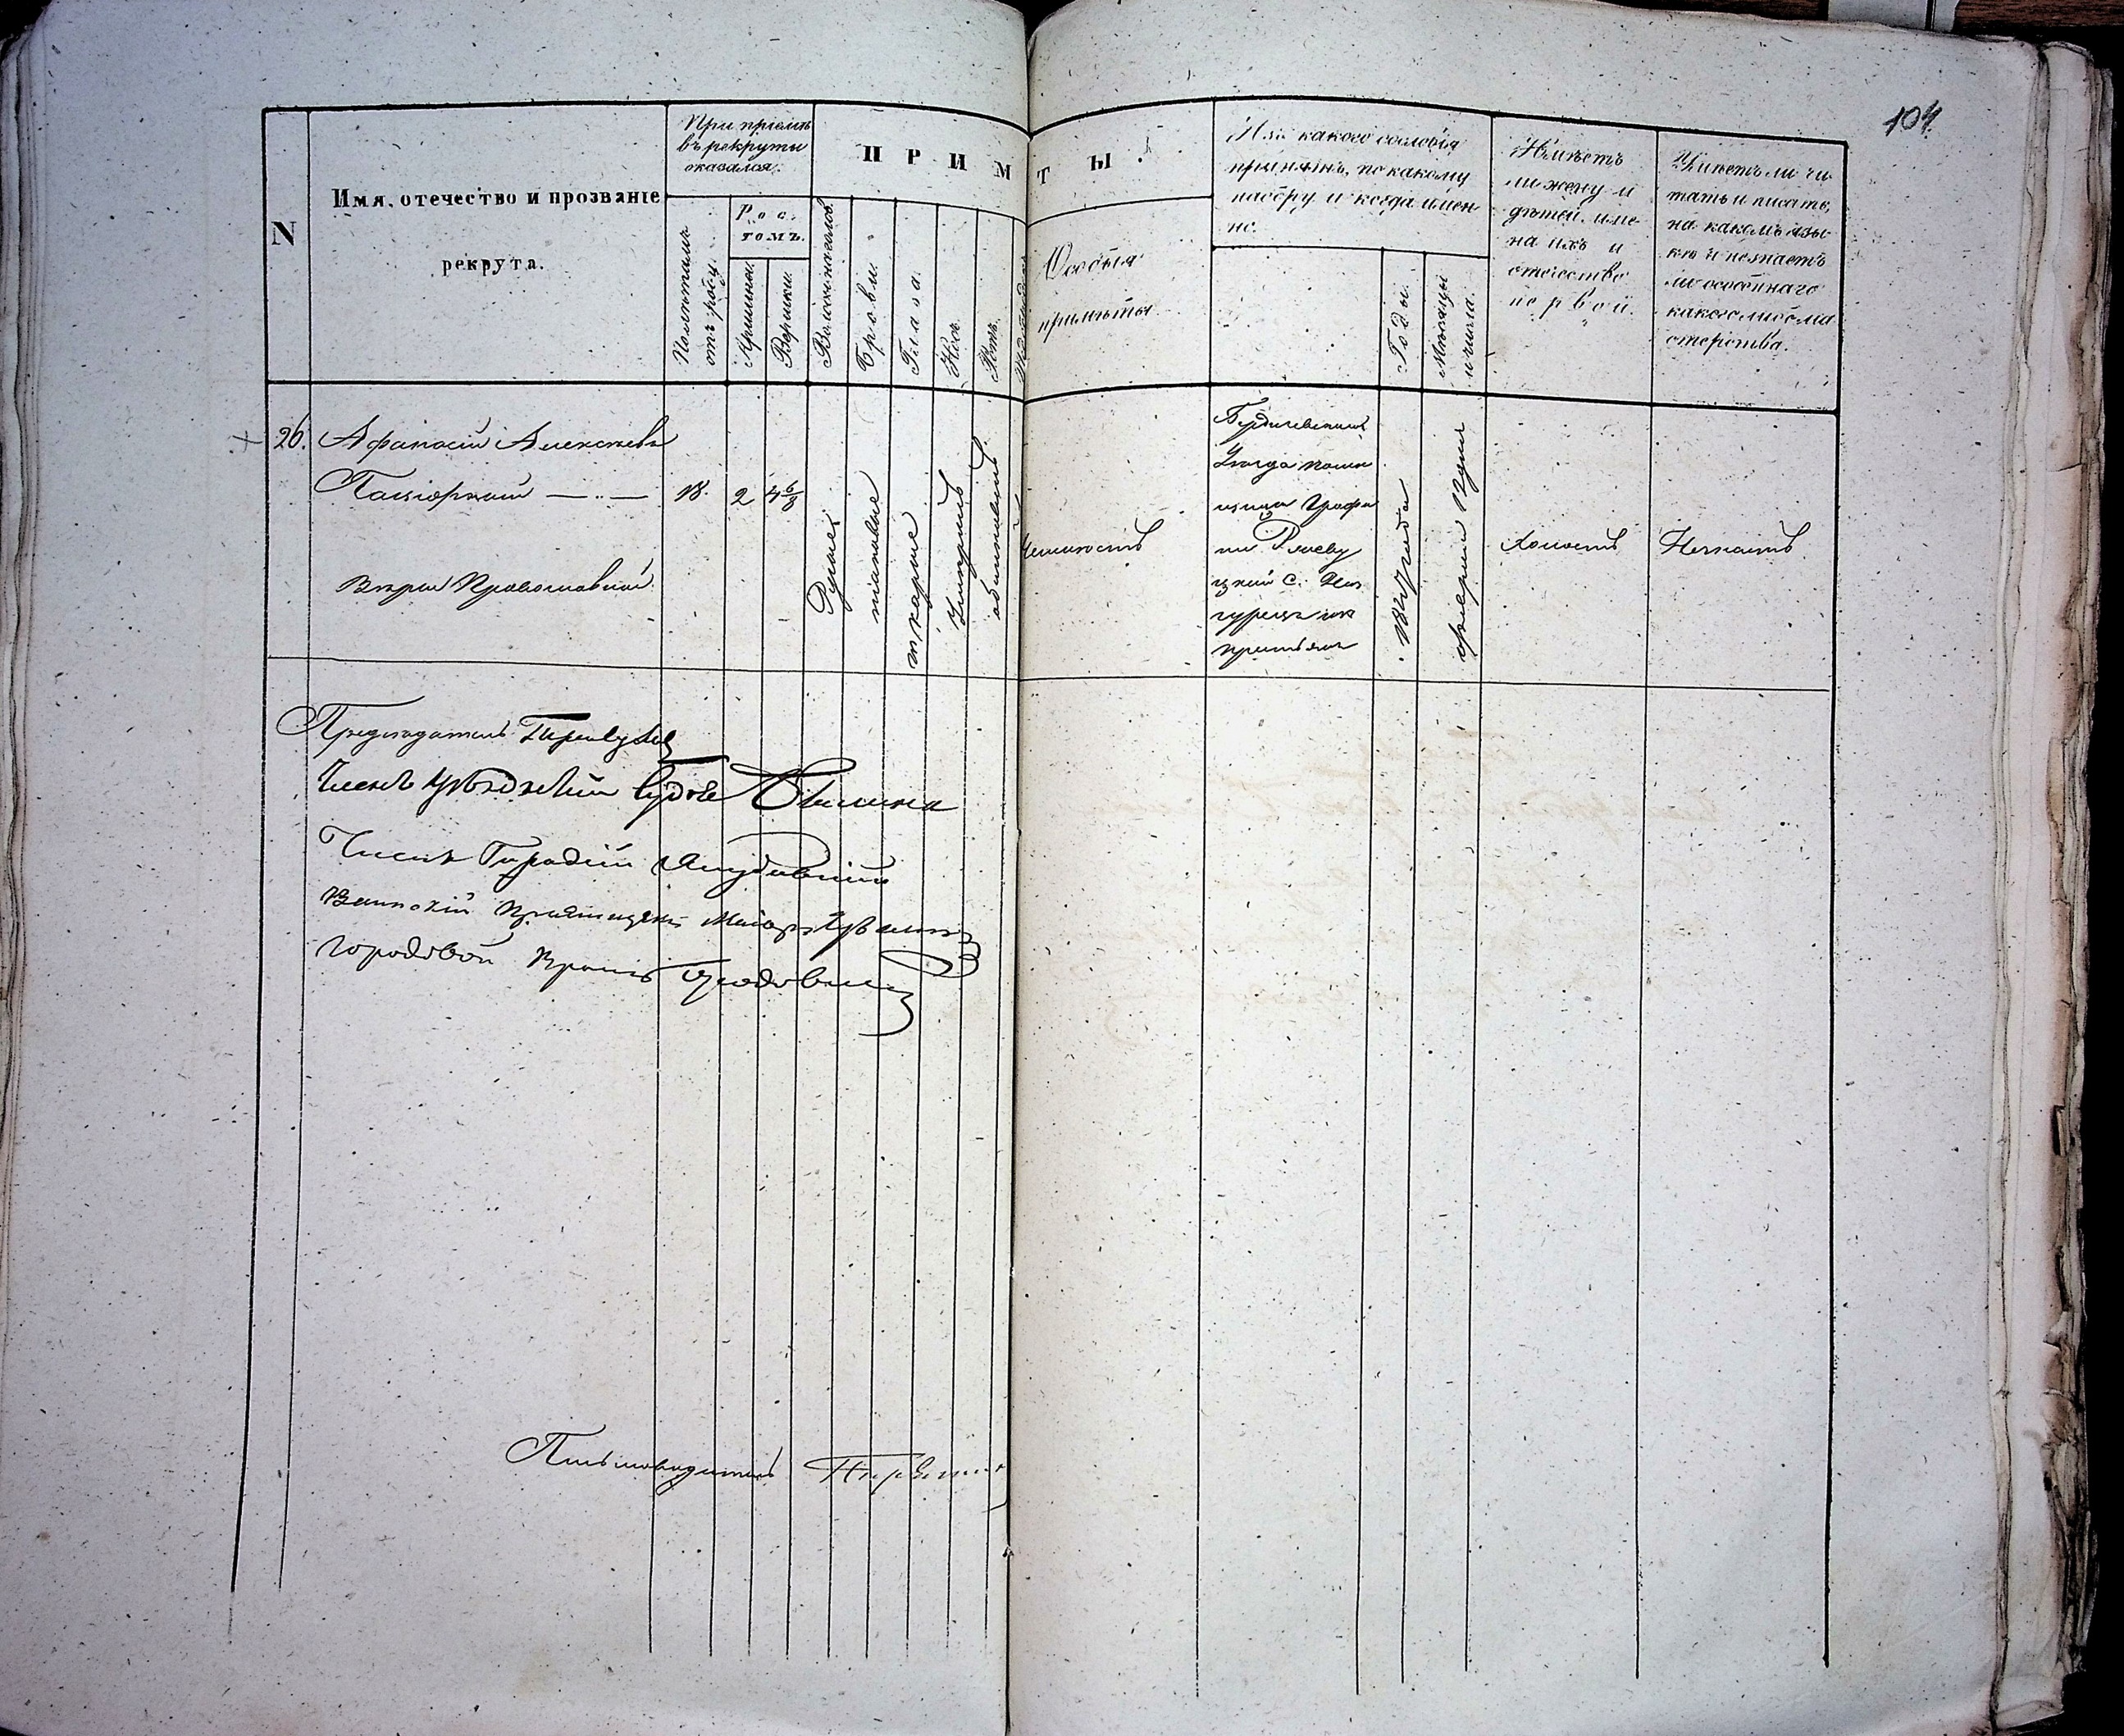 104
N
Имя, отечество и прозваніе
рекрута.
При пріемѣ
въ рекруты
оказался.
Полѣтамъ
отъ роду.
Рос-
томъ.
Аршины.
Вершки.
ПРИМѢТЫ.
Волосы на голов.
Брови.
Глаза.
Носъ.
Ротъ.
Особыя
примѣты
Изъ какого сословія
принятъ, по какому
набору и когда имен-
но.
Годы.
Мѣсяцы
и числа.
Имѣетъ
ли жену и
дѣтей, име-
на ихъ и
отчество
первой.
Умѣетъ ли чи-
тать и писать,
на какомъ язы-
кѣ и незнаетъ
ли особеннаго
какого либо ма-
стерства.
26.
Афанасій Алексѣевъ
18.
2
4 6/8
Вѣры Православной
Русые
таковые
карые
Умѣренъ
обыкновенъ
Неимѣетъ
Бердичевскаго
Уѣзда помѣ
щицы Графи
ни Ржеву
ской с.
крестьянъ
года
февраля 12 дня
Холостъ
Незнаетъ
Предсѣдатель
Членъ Уѣздный Судья
Членъ
Воинскій Пріемщикъ Маіоръ
Городовой Врачь
Письмоводитель